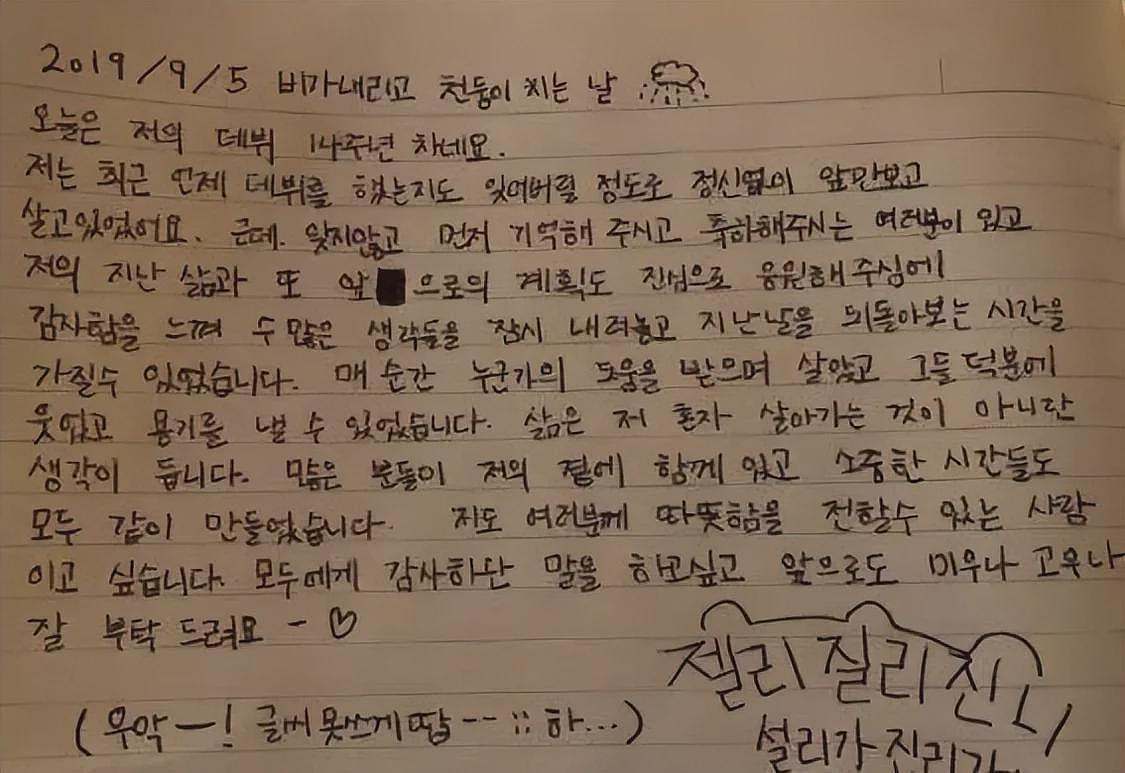 2019/9/5 비가내리고 천둥이 치는 날
오늘은 저의 데뷔 14주년 차네요.
저는 최근 언제 데뷔를 했는지도 잊어버릴 정도로 정신없이 앞만보고
살고있었어요. 근데. 잊지않고 먼저 기억해 주시고 축하해주시는 여러분이 있고
저의 지난 삶과 또 앞으로의 계획도 진심으로 응원해주심에
감사함을 느껴 수많은 생각들을 잠시 내려놓고 지난날을 되돌아보는 시간을
가질수 있었습니다. 매 순간 누군가의 도움을 받으며 살았고 그들 덕분에
웃었고 용기를 낼 수 있었습니다. 삶은 저 혼자 살아가는 것이 아니란
생각이 듭니다. 많은 분들이 저의 곁에 함께 있고 소중한 시간들도
모두 같이 만들었습니다. 저도 여러분께 따뜻함을 전할수 있는 사람
이고 싶습니다. 모두에게 감사하단 말을 하고싶고 앞으로도 미우나 고우나
잘 부탁 드려요 - ♡
젤리질리진
(우악ㅡ! 글씨못쓰게땁--;;하...)
설리가진리가